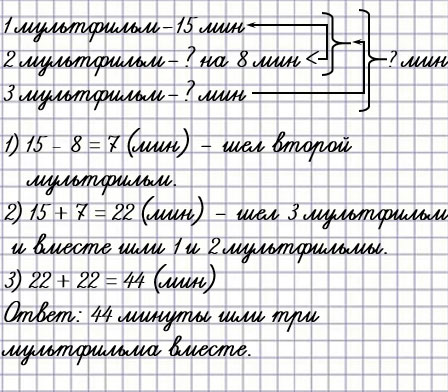 1 мультфильм – 15 мин
2 мультфильм – ? на 8 мин <
? мин
3 мультфильм – ? мин
1) 15 – 8 = 7 (мин) – шел второй
мультфильм.
2) 15 + 7 = 22 (мин) – шел 3 мультфильм
и вместе шли 1 и 2 мультфильмы.
3) 22 + 22 = 44 (мин)
Ответ: 44 минуты шли три
мультфильма вместе.